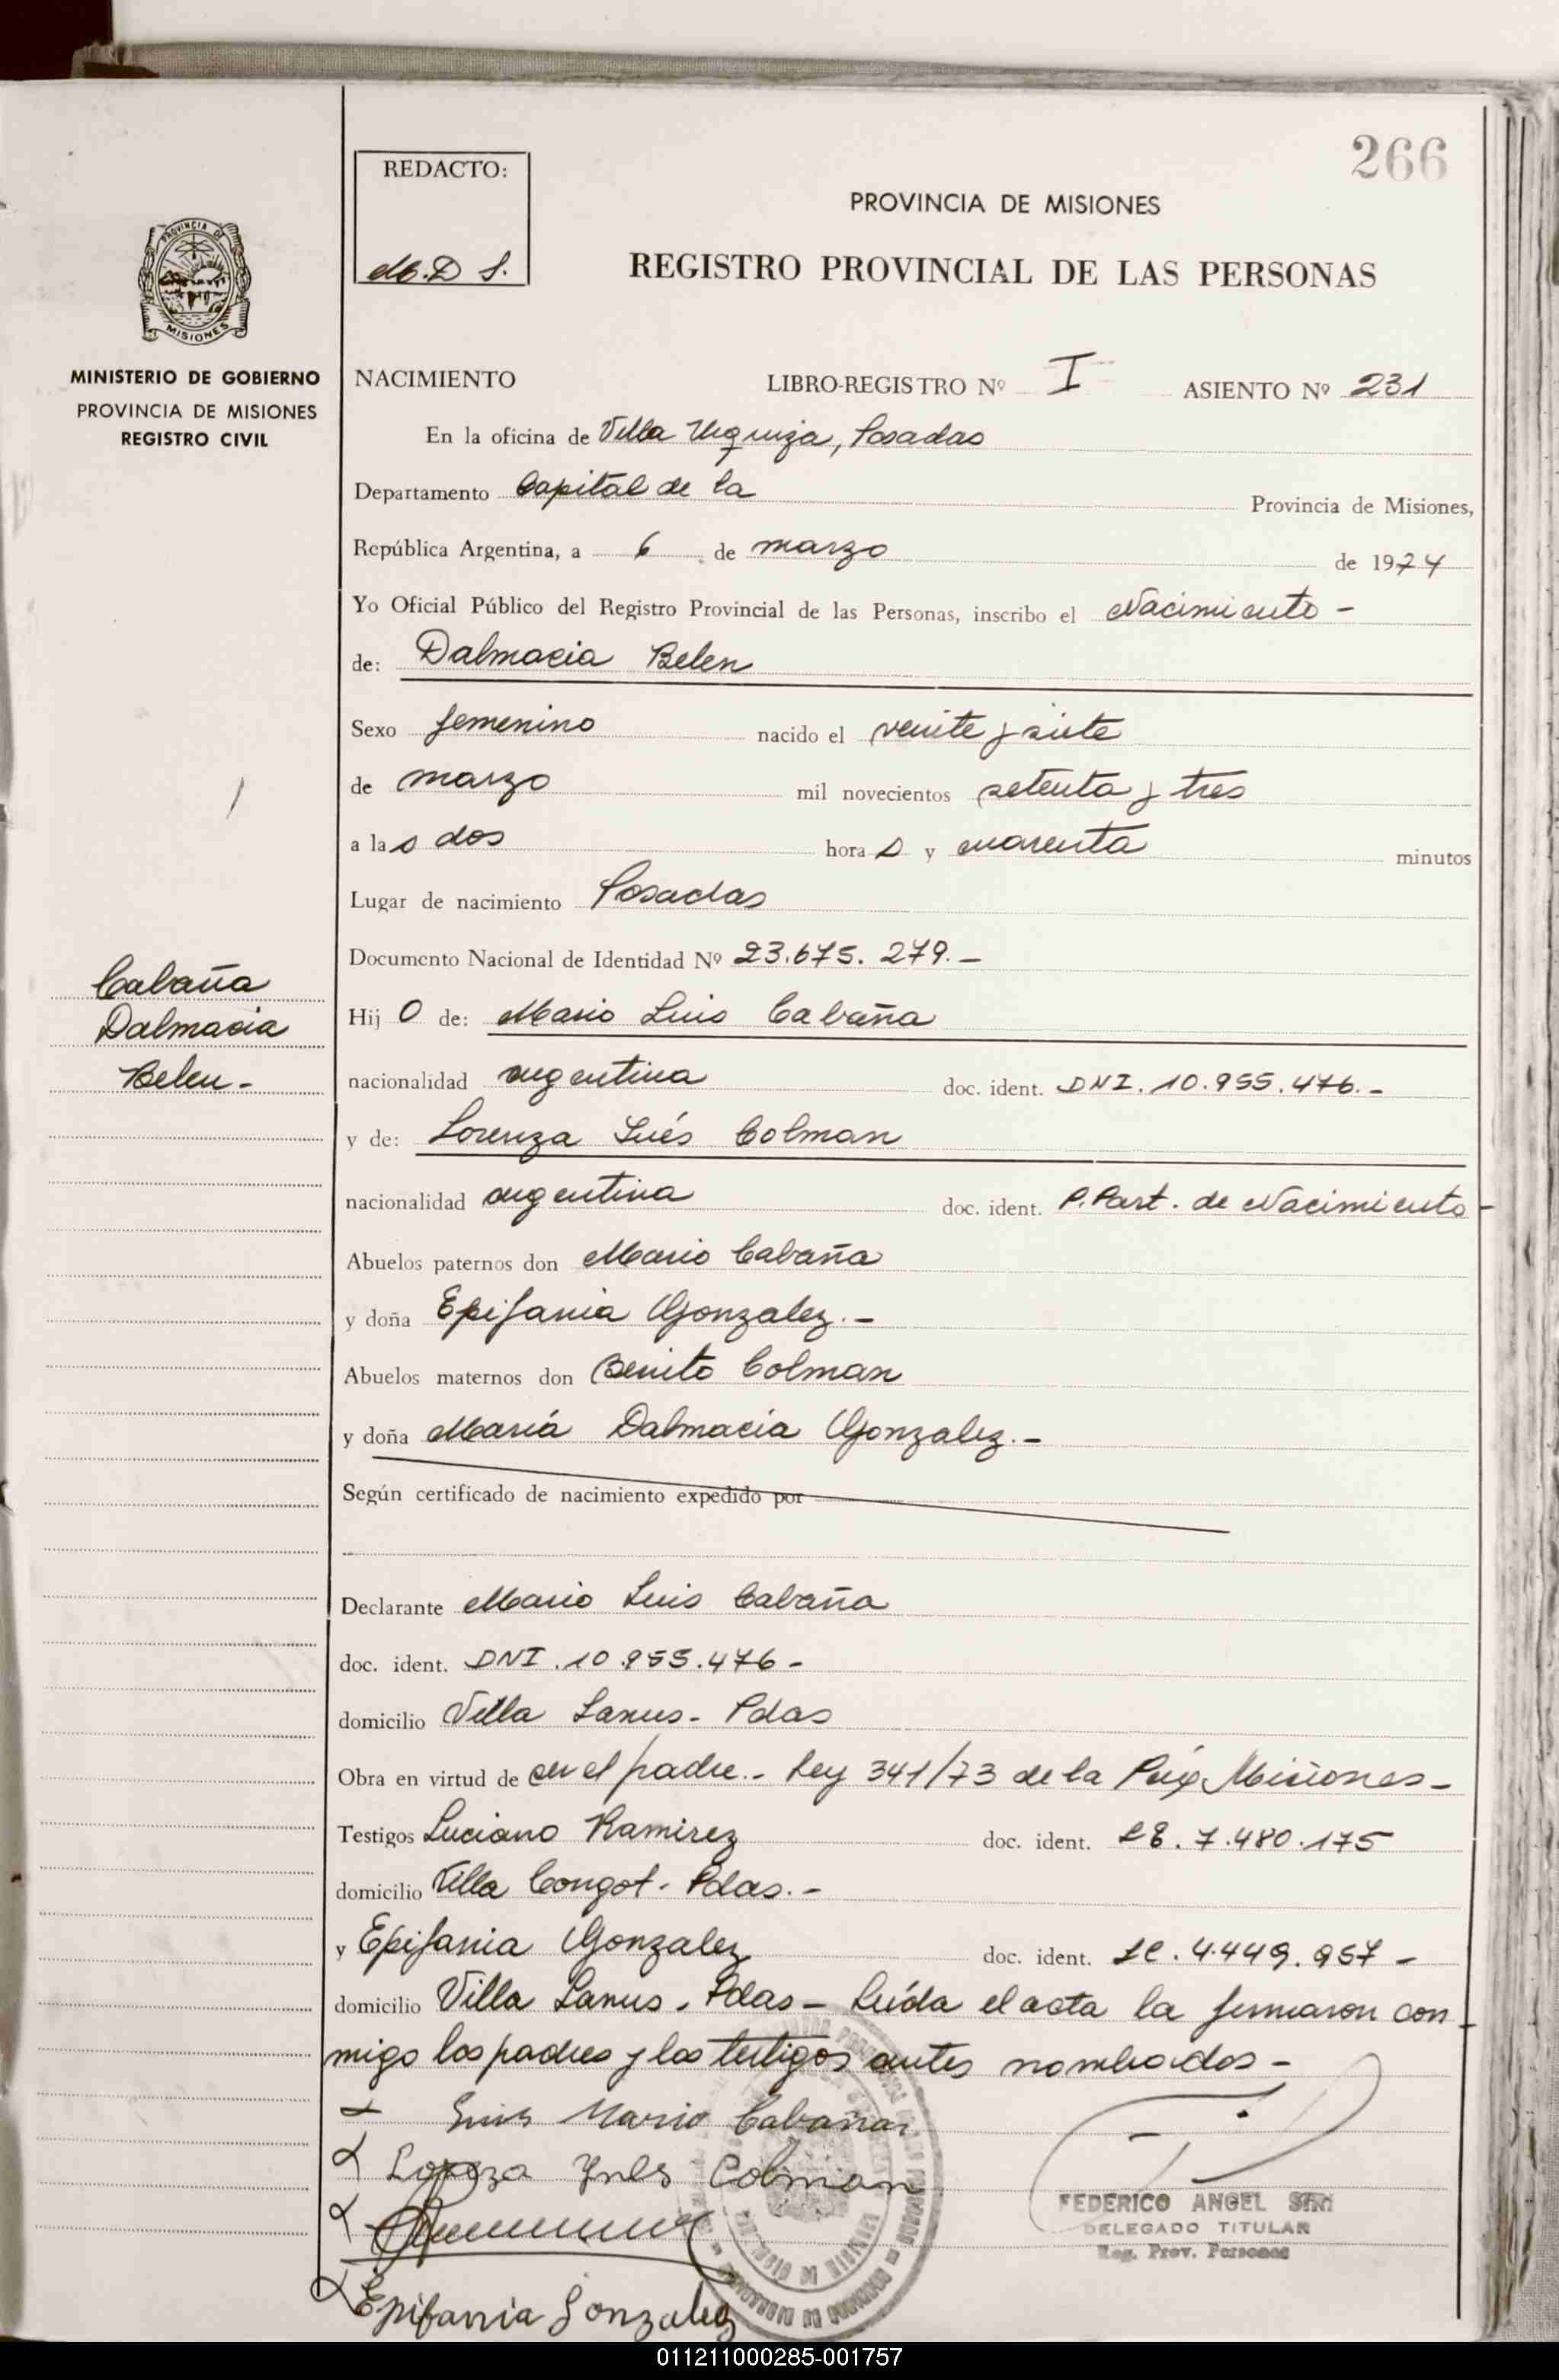 266
REDACTO:
M.D S.
PROVINCIA DE MISIONES
REGISTRO PROVINCIAL DE LAS PERSONAS
PROVINCIA DE
MISIONES
MINISTERIO DE GOBIERNO
PROVINCIA DE MISIONES
REGISTRO CIVIL
NACIMIENTO LIBRO-REGISTRO Nº I ASIENTO Nº 231
En la oficina de Villa Urquiza, Posadas
Departamento Capital de la Provincia de Misiones,
República Argentina, a 6 de marzo de 1974
Yo Oficial Público del Registro Provincial de las Personas, inscribo el Nacimiento -
de: Dalmacia Belen
Sexo femenino nacido el veinte y siete
de marzo mil novecientos setenta y tres
a las dos hora s y cuarenta minutos
Lugar de nacimiento Posadas
Documento Nacional de Identidad Nº 23.675.279.-
Cabaña
Dalmacia
Belen-
Hij o de: Mario Luis Cabaña
nacionalidad argentina doc. ident. DNI. 10.955.476.-
y de: Lorenza Inés Colman
nacionalidad argentina doc. ident. P. Part. de Nacimiento-
Abuelos paternos don Mario Cabaña
y doña Epifania Gonzalez.-
Abuelos maternos don Benito Colman
y doña María Dalmacia Gonzalez.-
Según certificado de nacimiento expedido por
Declarante Mario Luis Cabaña
doc. ident. DNI. 10.955.476-
domicilio Villa Lanus- Pdas
Obra en virtud de ser el padre.- Ley 341/73 de la Misiones-
Testigos Luciano Ramirez doc. ident. 7.480.175
domicilio Villa Congot- Pdas.-
y Epifania Gonzalez doc. ident. LC. 4.449.957-
domicilio Villa Lanus- Pdas- Leída el acta la firmaron con
migo los padres y los testigos antes nombrados-
Luis Mario Cabañas
Lorenza Ines Colman
Epifania Gonzalez
FEDERICO ANGEL SIRI
DELEGADO TITULAR
Reg. Prov. Personas
011211000285-001757